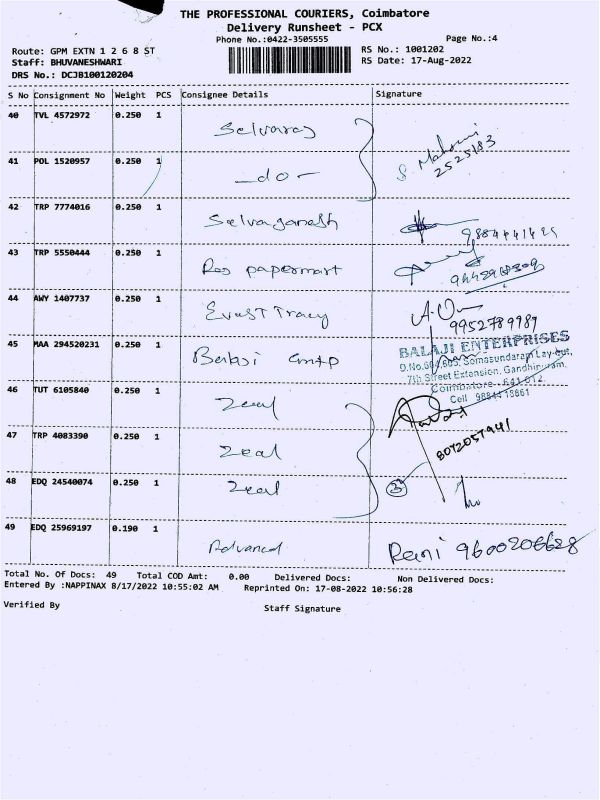 THE PROFESSIONAL COURIERS, Coimbatore
Delivery Runsheet - PCX
Phone No.:0422-3505555 Page No.:4
Route: GPM EXTN 1 2 6 8 ST RS No.: 1001202
Staff: BHUVANESHWARI RS Date: 17-Aug-2022
DRS No.: DCJB100120204
S No Consignment No Weight PCS Consignee Details Signature
40 TVL 4572972 0.250 1 Selvaraj
41 POL 1520957 0.250 1 -do- S. 2525183
42 TRP 7774016 0.250 1 Selvaganesh
43 TRP 5550444 0.250 1 papermart
44 AWY 1407737 0.250 1 Tracy 9952789989
45 MAA 294520231 0.250 1
BALAJI ENTERPRISES
D.No.604,605, Somasundaram Lay-out,
7th Street Extension, Gandhipuram,
Coimbatore - 641 012.
Cell 98844 18661
46 TUT 6105840 0.250 1 Zeal
47 TRP 4083390 0.250 1 Zeal 8072057941
48 EDQ 24540074 0.250 1 Zeal 3
49 EDQ 25969197 0.190 1 Advanced 9600206628
Total No. Of Docs: 49 Total COD Amt: 0.00 Delivered Docs: Non Delivered Docs:
Entered By :NAPPINAX 8/17/2022 10:55:02 AM Reprinted On: 17-08-2022 10:56:28
Verified By Staff Signature